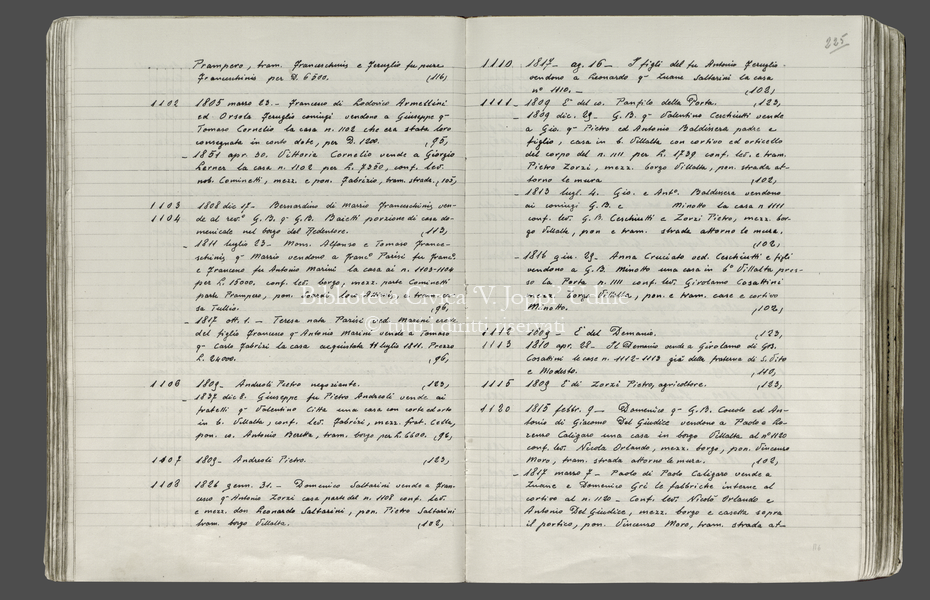 Prampero, tram. Franceschinis e Feruglio fu pure
Franceschinis per D. 6500. (116)
1102 1805 marzo 23 – Francesco di Lodovico Armellini
ed Orsola Feruglio coniugi vendono a Giuseppe q-
Tomaso Cornelio la casa n. 1102 che era stata loro
consegnata in conto dote, per D. 1200. (95)
– 1851 apr. 30. Vittoria Cornelio vende a Giorgio
Lerner la casa n. 1102 per L. 7350, conf. lev.
nob. Cominetti, mezz. e pon. Fabrizio, tram. strada. (105)
1103 1808 dic 17 – Bernardino di Marzio Franceschinis ven-
1104 de al revº G.B. q- G.B. Baietti porzione di casa do-
menicale nel borgo del Redentore. (113)
– 1811 luglio 23 – Mons. Alfonso e Tomaso France-
schinis q- Marzio vendono a Francº Parisi fu Francº
e Francesco fu Antonio Marini la casa ai n. 1103-1104
per L. 15000, conf. lev. borgo, mezz. parte Cominetti
parte Prampero, pon.
sa Tullio. (96)
– 1817 ott. 1. – Teresa nata Parisi ved. Marini erede
del figlio Francesco q- Antonio Marini vende a Tomaso
q- Carlo Fabrizi la casa acquistata 11 luglio 1811. Prezzo
L. 24000. (96)
1106 1809 – Andreoli Pietro negoziente. (123)
– 1837 dic 8. Giuseppe fu Pietro Andreoli vende ai
fratelli q- Valentino Citta una casa con corte ed orto
in b. Villalta, conf. lev. Fabrizi, mezz. frat. Cella,
pon. co. Antonio Beretta, tram. borgo per L. 6600. (96)
1107 1809 – Andreoli Pietro. (123)
1108 1826 genn. 31. – Domenico Saltarini vende a Fran-
cesco q- Antonio Zorzi casa parte del n. 1108 conf. lev.
e mezz. don Leonardo Saltarini, pon. Pietro Saltarini
tram. borgo Villalta. (102)
225
1110 1817 – ag. 16 – I figli del fu Antonio Feruglio
vendono a Leonardo q- Zuane Saltarini la casa
nº 1110. – (102)
1111 – 1809 E' del co. Panfilo della Porta. (123)
– 1809 dic. 29 – G.B. q- Valentino Cecchiutti vende
a Gio. q- Pietro ed Antonio Baldissera padre e
figlio, casa in b. Villalta con cortivo ed orticello
del corpo del n. 1111 per L. 1739 conf. lev. e tram.
Pietro Zorzi, mezz. borgo Villalta, pon. strada at-
torno le mura. (102)
– 1813 lugl. 4. Gio. e Antº. Baldissera vendono
ai coniugi G.B. e Minotto la casa n 1111
conf. lev. G.B. Cecchiutti e Zorzi Pietro, mezz. bor-
go Villalta, pon e tram. strada attorno le mura.
(102)
– 1816 giu. 29. Anna Cruciato ved. Cecchiutti e figli
vendono a G.B. Minotto una casa in bº Villalta pres-
so la Porta n. 1111 conf. lev. Girolamo Cosattini
mezz. borgo Villalta, pon. e tram. case e cortivo
Minotto. (102)
1112 1809 – E' del Demanio. (123)
1113 1810 apr. 28 – Il Demanio vende a Girolamo di GB.
Cosattini le case n. 1112-1113 già della fraterna di S. Vito
e Modesto. (110)
1115 1809 E' di Zorzi Pietro, agricoltore. (123)
1120 1815 febbr. 9 – Domenico q- G.B. Cossio ed An-
tonio di Giacomo Del Giudice vendono a Paolo e Lo-
renzo Caligaro una casa in borgo Villalta al nº 1120
conf. lev. Nicola Orlando, mezz. borgo, pon. Vincenzo
Moro, tram. strada attorno le mura. (102)
– 1817 marzo 7 – Paolo di Paolo Caligaro vende a
Zuane e Domenico Gri le fabbriche interne al
cortivo al n. 1120 – Conf. lev. Nicolò Orlando e
Antonio Del Giudice, mezz. borgo e casetta sopra
il portico, pon. Vincenzo Moro, tram. strada at-
Biblioteca Civica 'V. Joppi' Udine
© tutti i diritti riservati